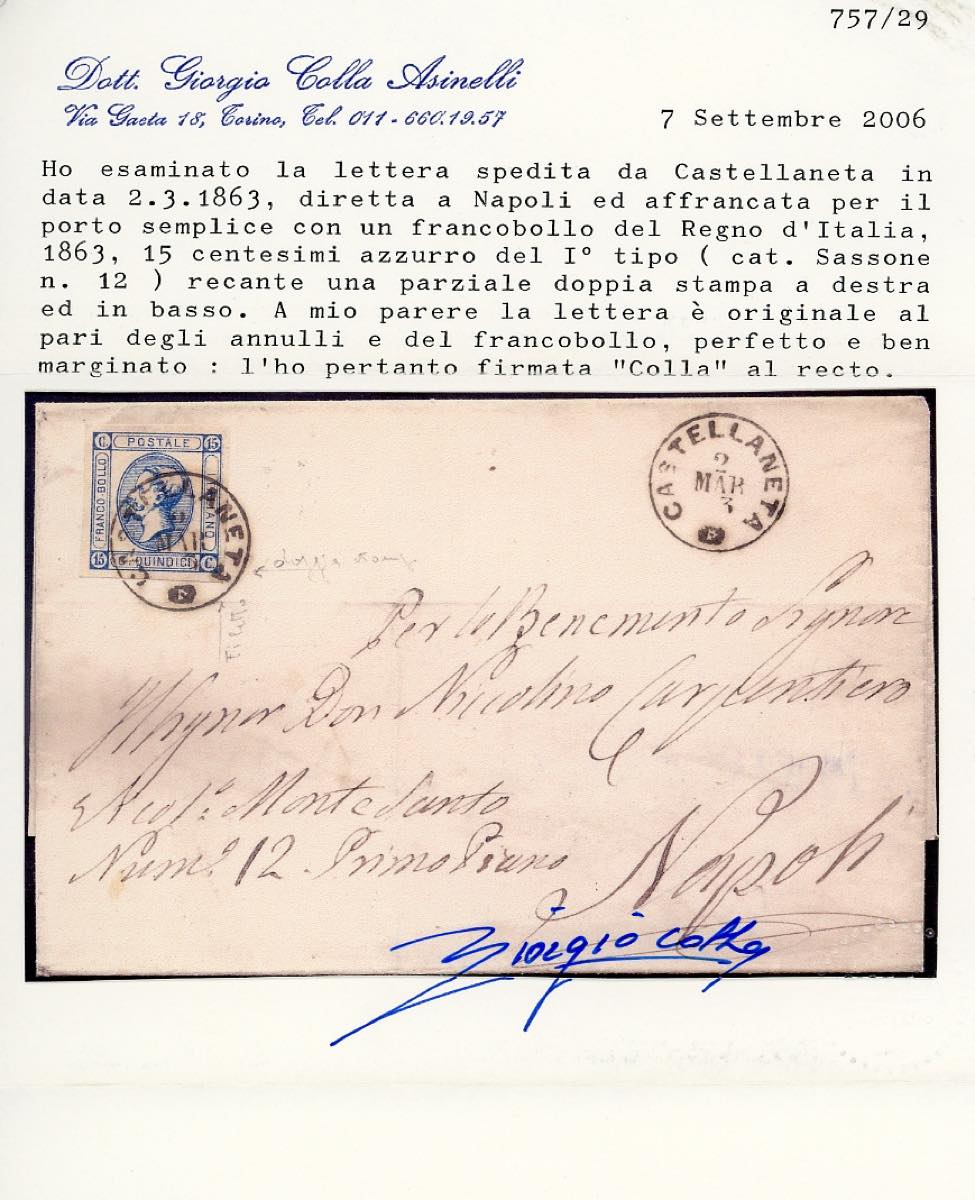 757/29
Dott. Giorgio Colla Asinelli
Via Gaeta 18, Torino, Tel. 011-660.19.57
7 Settembre 2006
Ho esaminato la lettera spedita da Castellaneta in
data 2.3.1863, diretta a Napoli ed affrancata per il
porto semplice con un francobollo del Regno d'Italia,
1863, 15 centesimi azzurro del I° tipo ( cat. Sassone
n. 12 ) recante una parziale doppia stampa a destra
ed in basso. A mio parere la lettera è originale al
pari degli annulli e del francobollo, perfetto e ben
marginato : l'ho pertanto firmata "Colla" al recto.
C. POSTALE 15
FRANCO-BOLLO
15 QUINDICI C.
CASTELLANETA
2
MAR
3
Filetto
Per le Benemerito Signore
Don Nicolino Carpentiero
Monte Santo
Num.º 12 Primo Piano Napoli
Giorgio Colla